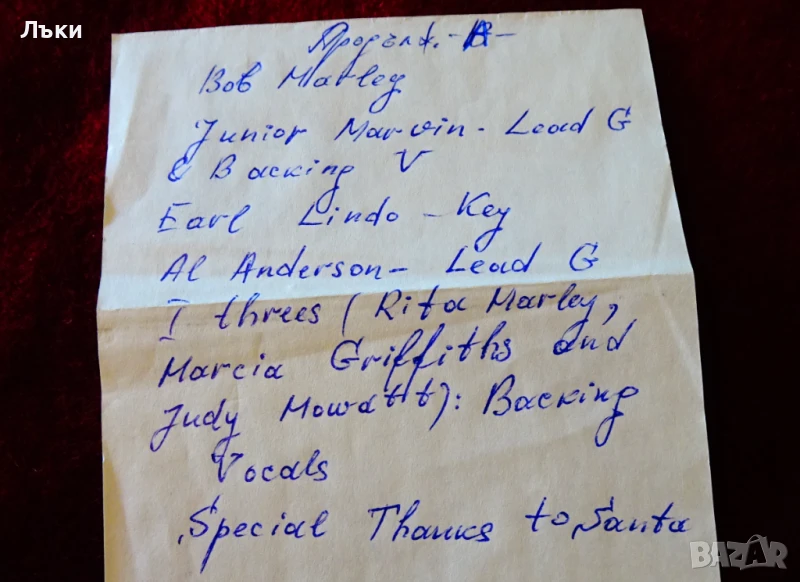 Лъки
Продълж. -B-
Bob Marley
Junior Marvin - Lead G
& Backing V
Earl Lindo - Key
Al Anderson - Lead G
I threes (Rita Marley,
Marcia Griffiths and
Judy Mowatt): Backing
Vocals
Special Thanks to Santa
BAZAR